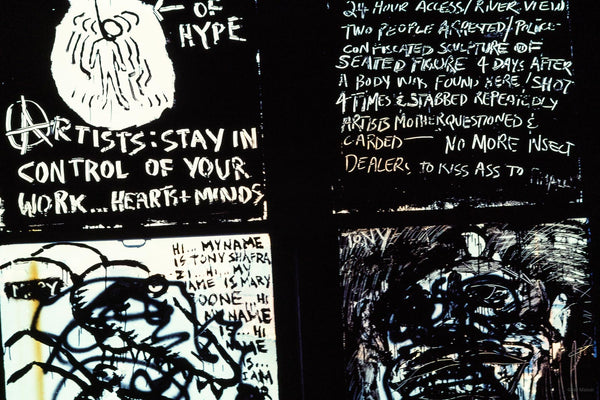 OF
HYPE
ARTISTS: STAY IN
CONTROL OF YOUR
WORK... HEARTS + MINDS
24 HOUR ACCESS/RIVER VIEW
TWO PEOPLE ARRESTED/POLICE
CONFISCATED SCULPTURE OF
SEATED FIGURE 4 DAYS AFTER
A BODY WAS FOUND HERE/SHOT
4 TIMES & STABBED REPEATEDLY
ARTISTS MOTHER QUESTIONED &
CARDED — NO MORE INSECT
DEALERS TO KISS ASS TO
HI... MY NAME
IS TONY SHAFRA
ZI... HI... MY
NAME IS MARY
OONE... HI
NAME
IS... HI
NAME
IS...
I AM
TONY